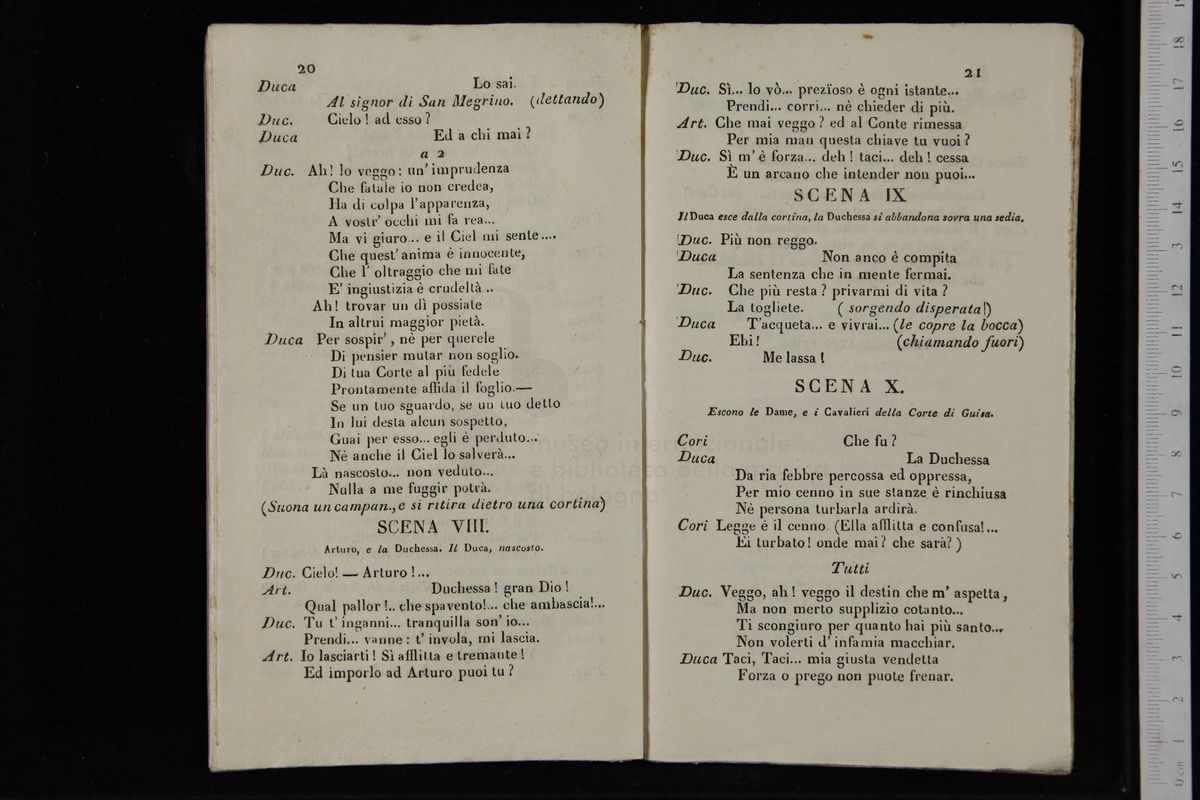 20
Duca Lo sai.
Al signor di San Megrino. (dettando)
Duc. Cielo! ad esso?
Duca Ed a chi mai?
a 2
Duc. Ah! lo veggo: un' imprudenza
Che fatale io non credea,
Ha di colpa l'apparenza,
A vostr' occhi mi fa rea...
Ma vi giuro... e il Ciel mi sente....
Che quest' anima è innocente,
Che l' oltraggio che mi fate
E' ingiustizia è crudeltà ..
Ah! trovar un dì possiate
In altrui maggior pietà.
Duca Per sospir', nè per querele
Di pensier mutar non soglio.
Di tua Corte al più fedele
Prontamente affida il foglio.—
Se un tuo sguardo, se un tuo detto
In lui desta alcun sospetto,
Guai per esso... egli è perduto...
Nè anche il Ciel lo salverà...
Là nascosto... non veduto...
Nulla a me fuggir potrà.
(Suona un campan., e si ritira dietro una cortina)
SCENA VIII.
Arturo, e la Duchessa. Il Duca, nascosto.
Duc. Cielo! — Arturo!...
Art. Duchessa! gran Dio!
Qual pallor!.. che spavento!... che ambascia!...
Duc. Tu t' inganni... tranquilla son' io...
Prendi... vanne: t' invola, mi lascia.
Art. Io lasciarti! Sì afflitta e tremante!
Ed imporlo ad Arturo puoi tu?
21
Duc. Sì... lo vò... prezïoso è ogni istante...
Prendi... corri... nè chieder di più.
Art. Che mai veggo? ed al Conte rimessa
Per mia man questa chiave tu vuoi?
Duc. Sì m' è forza... deh! taci... deh! cessa
È un arcano che intender non puoi...
SCENA IX
Il Duca esce dalla cortina, la Duchessa si abbandona sovra una sedia.
Duc. Più non reggo.
Duca Non anco è compita
La sentenza che in mente fermai.
Duc. Che più resta? privarmi di vita?
La togliete. (sorgendo disperata)
Duca T'acqueta... e vivrai... (le copre la bocca)
Ehi! (chiamando fuori)
Duc. Me lassa!
SCENA X.
Escono le Dame, e i Cavalieri della Corte di Guisa.
Cori Che fu?
Duca La Duchessa
Da ria febbre percossa ed oppressa,
Per mio cenno in sue stanze è rinchiusa
Nè persona turbarla ardirà.
Cori Legge è il cenno. (Ella afflitta e confusa!...
Ei turbato! onde mai? che sarà?)
Tutti
Duc. Veggo, ah! veggo il destin che m' aspetta,
Ma non merto supplizio cotanto...
Ti scongiuro per quanto hai più santo...
Non volerti d' infamia macchiar.
Duca Taci, Taci... mia giusta vendetta
Forza o prego non puote frenar.